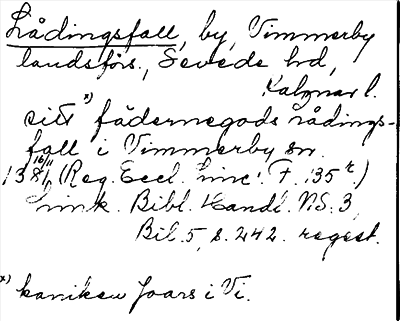 Rådingsfall, by, Vimmerby
landsförs., Sevede hd,
Kalmar l.
sitt x) fädernegods rådings-
fall i Vimmerby sn.
1381 16/11 (Reg. Eccl. Linc. F. 135 r)
Link. Bibl. Handl. N.S. 3,
Bil. 5, s. 242. regest.
x) kaniken Joars i Vi.